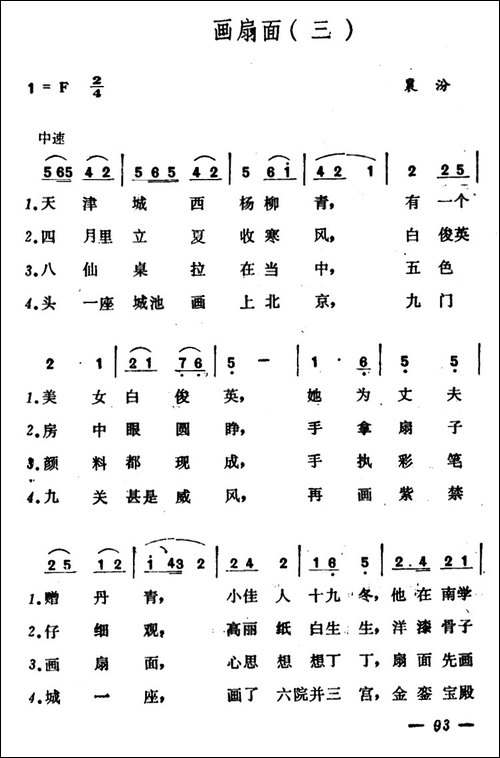 画扇面(三)
1=F 2/4
襄汾
中速
5 65 4 2 | 5 6 5 4 2 | 5 6 i | 4 2 1 | 2 2 5 |
1.天津城西杨柳青，有一个
2.四月里立夏收寒风，白俊英
3.八仙桌拉在当中，五色
4.头一座城池画上北京，九门
2 · 1 | 2 1 7 6 | 5 － | 1 · 6 | 5 5 |
1.美女白俊英，她为丈夫
2.房中眼圆睁，手拿扇子
3.颜料都现成，手执彩笔
4.九关甚是威风，再画紫禁
2 5 1 2 | i 4 3 2 | 2 4 2 | 1 6 5 | 2. 4 2 1 |
1.赠丹青，小佳人十九冬，他在南学
2.仔细观，高丽纸白生生，洋漆骨子
3.画扇面，心思想想丁丁，扇面先画
4.城一座，画了六院并三宫，金銮宝殿
— 93 —